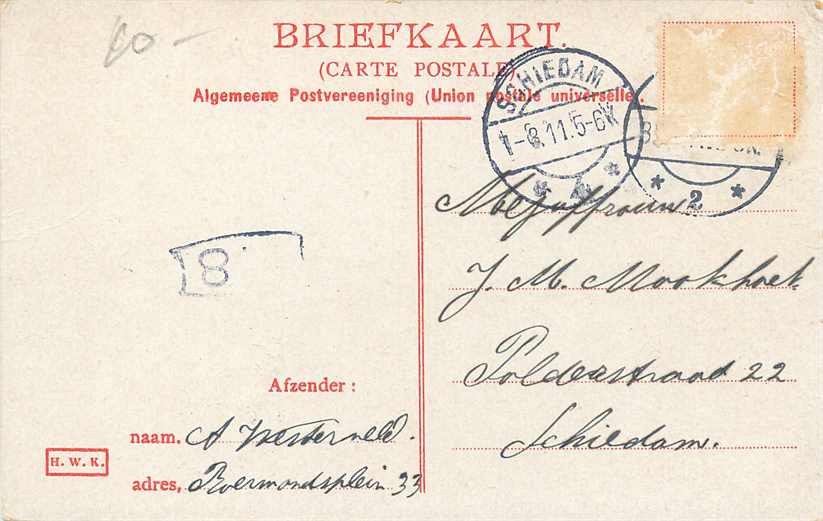 60 -
BRIEFKAART.
(CARTE POSTALE).
Algemeene Postvereeniging (Union postale universelle).
SCHIEDAM
1-8.11.5-6N
* 4 *
* 2 *
8
Mejuffrouw
J. M. Mookhoek
Polderstraat 22
Schiedam.
Afzender :
naam. A Westerveld.
adres, Roermondsplein 33
H. W. K.